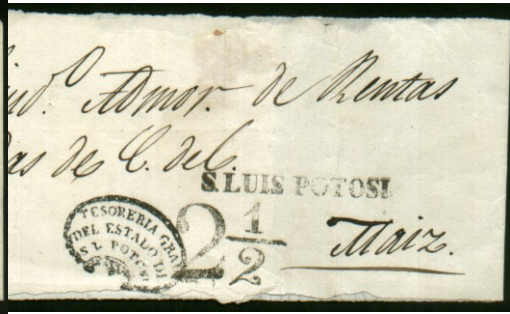 Admor. de Rentas
de C. del C.
S. LUIS POTOSI
TESORERIA GRAL
DEL ESTADO DE
S. L. POTOSI
2 1/2
Maiz.